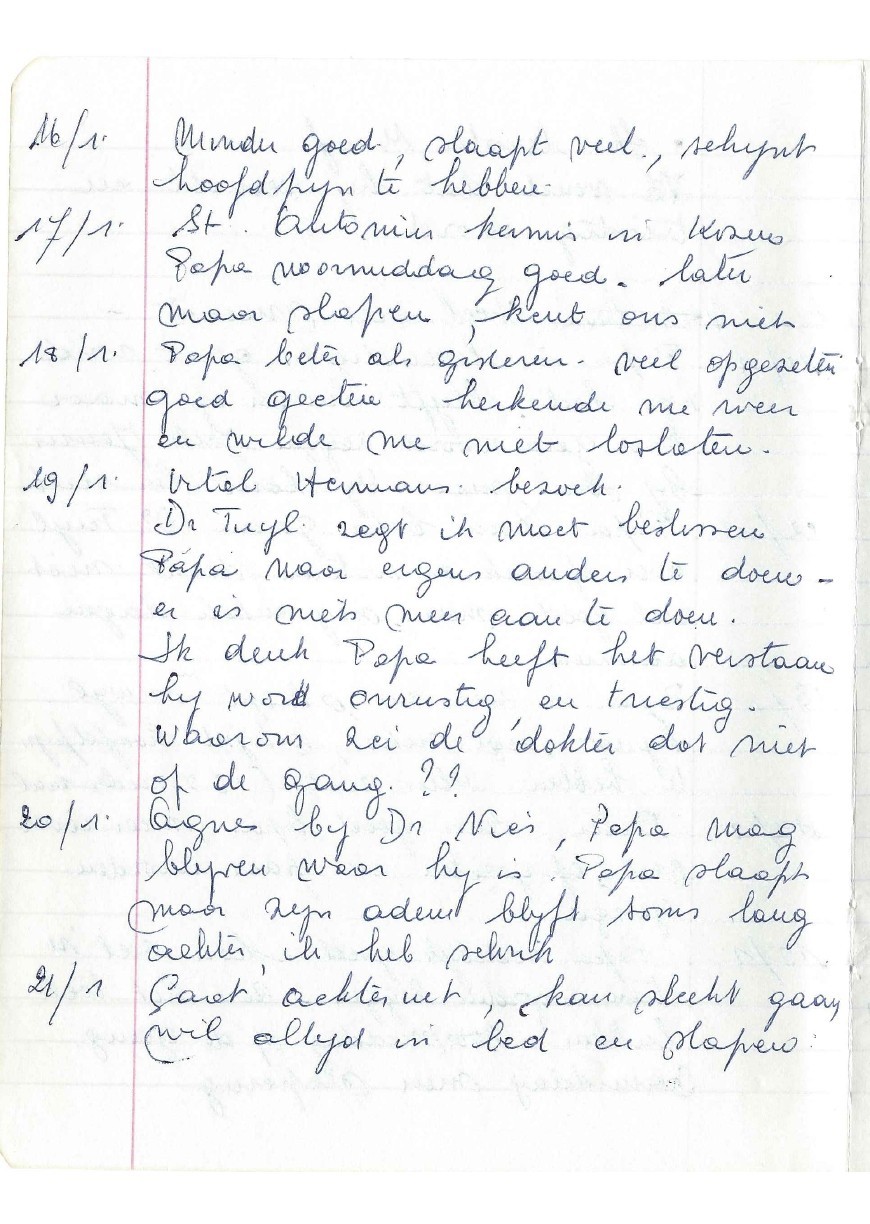 16/1. Minder goed, slaapt veel., schijnt
hoofdpijn te hebben.
17/1. St. Antonius kermis in Kozen
Papa voormiddag goed. later
maar slapen, kent ons niet
18/1. Papa beter als gisteren. veel opgezeten
goed geeten herkende me weer
en wilde me niet loslaten.
19/1. Vital Hermans. bezoek.
Dr Tuyl. zegt ik moet beslissen
Papa naar ergens anders te doen -
er is niets meer aan te doen.
Ik denk Papa heeft het verstaan
hy word onrustig, en triestig.
Waarom zei de dokter dat niet
op de gang. ??
20/1. Agnes by Dr Nies, Papa mag
blyven waar hy is. Papa slaapt
maar zyn adem blyft soms lang
achter, ik heb schrik
21/1 Gaat achteruit, kan slecht gaan,
wil altyd in bed en slapen.